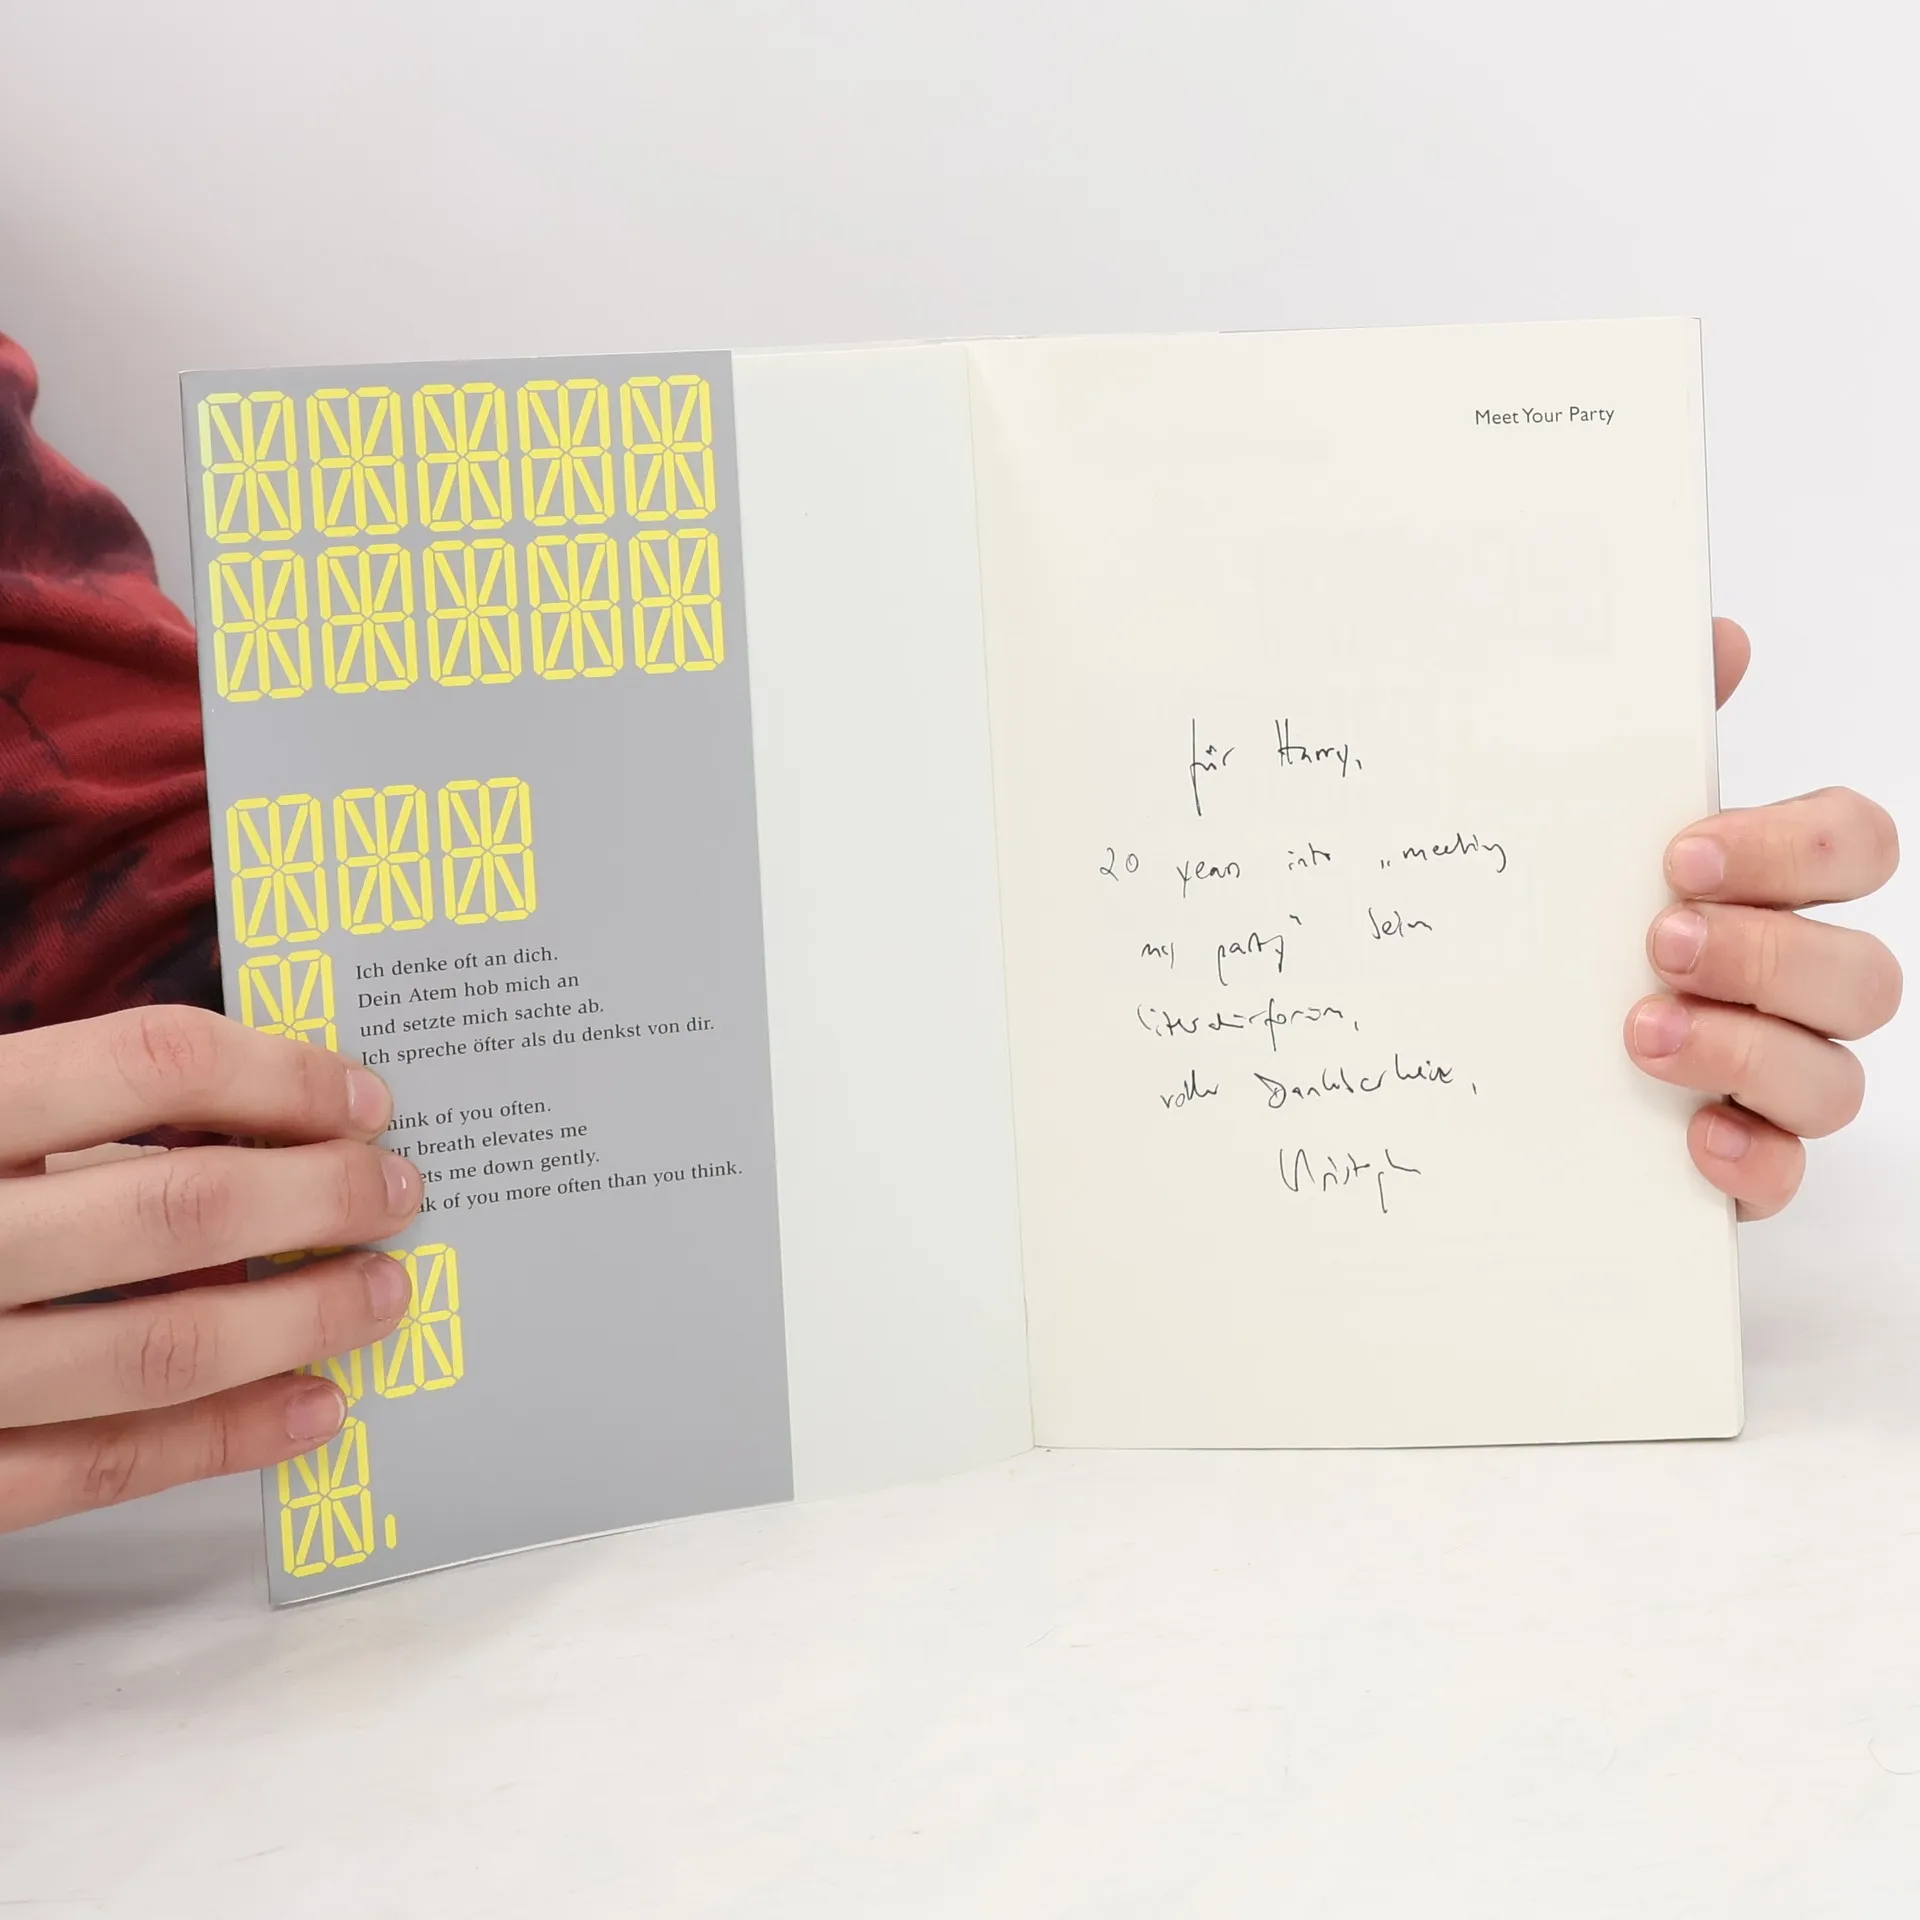 Ich denke oft an dich.
Dein Atem hob mich an
und setzte mich sachte ab.
Ich spreche öfter als du denkst von dir.
hink of you often.
ur breath elevates me
ets me down gently.
k of you more often than you think.
Meet Your Party
für Harry,
20 years into „meeting
my party" beim
literaturforum,
voller Dankbarkeit,
Christoph